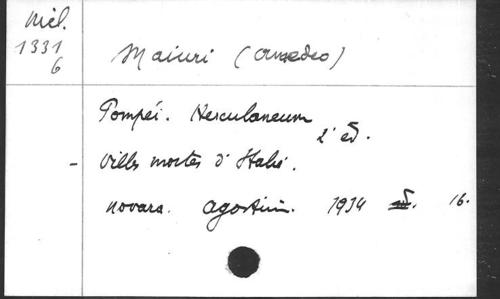 Niel.
1331
6
Maiuri (Amedeo)
Pompéi. Herculaneum
2e ed.
- Villes mortes d'Italie.
Novara. Agostini. 1934 16.